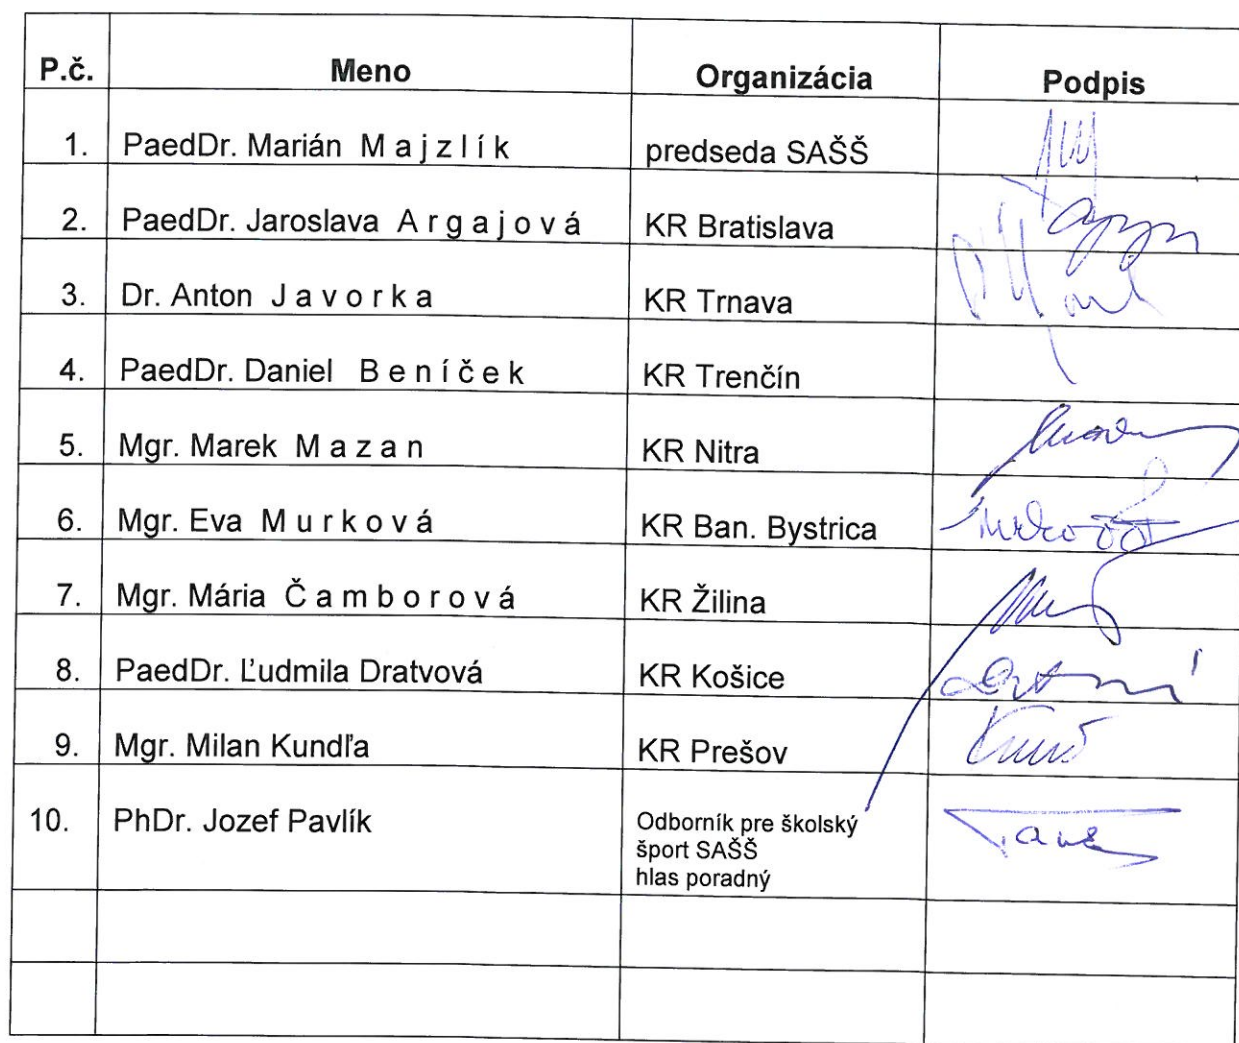 P.č. Meno Organizácia Podpis
1. PaedDr. Marián M a j z l í k predseda SAŠŠ
2. PaedDr. Jaroslava A r g a j o v á KR Bratislava
3. Dr. Anton J a v o r k a KR Trnava
4. PaedDr. Daniel B e n í č e k KR Trenčín
5. Mgr. Marek M a z a n KR Nitra
6. Mgr. Eva M u r k o v á KR Ban. Bystrica
7. Mgr. Mária Č a m b o r o v á KR Žilina
8. PaedDr. Ľudmila Dratvová KR Košice
9. Mgr. Milan Kundľa KR Prešov
10. PhDr. Jozef Pavlík Odborník pre školský
šport SAŠŠ
hlas poradný